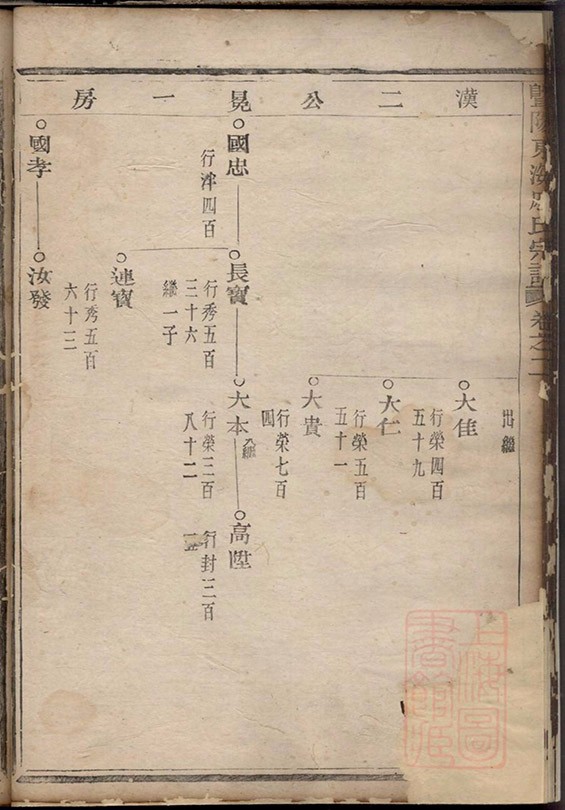 暨陽東海 氏宗譜 卷之二
漢二公晃一房
出繼
大佳
行榮四百
五十九
大仁
行榮五百
五十一
大貴
行榮七百
四
國忠
行泮四百
長寶
行秀五百
三十六
繼一子
大本
入繼
行榮三百
八十二
高陞
行封三百
連寶
行秀五百
六十三
國孝
汝發
上海圖
書館藏